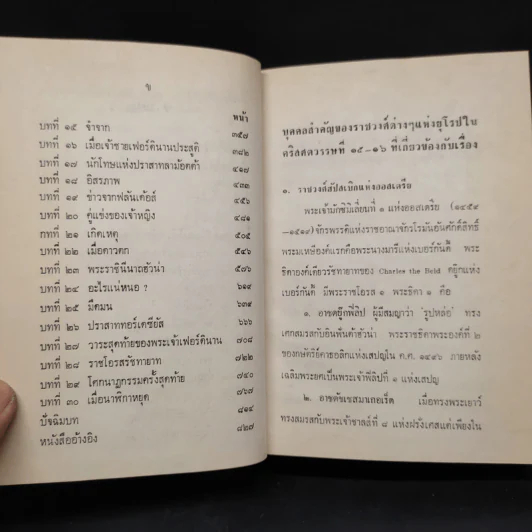 ข
หน้า
บทที่ ๑๕ จำจาก ๓๕๗
บทที่ ๑๖ เมื่อเจ้าชายเฟอร์ดินานประสูติ ๓๘๒
บทที่ ๑๗ นักโทษแห่งปราสาทลาม้อคต้า ๔๑๗
บทที่ ๑๘ อิสรภาพ ๔๓๓
บทที่ ๑๙ ข่าวจากฟลันเด้อส์ ๔๕๖
บทที่ ๒๐ คู่แข่งของเจ้าหญิง ๔๘๑
บทที่ ๒๑ เกิดเหตุ ๕๐๕
บทที่ ๒๒ เมื่อดาวตก ๕๔๖
บทที่ ๒๓ พระราชินีนาถฮัวน่า ๕๗๖
บทที่ ๒๔ อะไรแน่หนอ ? ๖๑๔
บทที่ ๒๕ มืดมน ๖๓๙
บทที่ ๒๖ ปราสาททอร์เดซียัส ๖๖๖
บทที่ ๒๗ วาระสุดท้ายของพระเจ้าเฟอร์ดินาน ๗๐๘
บทที่ ๒๘ ราชโอรสรัชทายาท ๗๒๒
บทที่ ๒๙ โศกนาฏกรรมครั้งสุดท้าย ๗๔๐
บทที่ ๓๐ เมื่อนาฬิกาหยุด ๗๖๗
ปัจฉิมบท ๘๑๔
หนังสืออ้างอิง ๘๒๗
บุคคลสำคัญของราชวงศ์ต่างๆแห่งยุโรปใน
คริสตศตวรรษที่ ๑๕-๑๖ ที่เกี่ยวข้องกับเรื่อง
๑. ราชวงศ์ฮัปสเบิกแห่งออสเตรีย
พระเจ้ามักซิมิเลี่ยนที่ ๑ แห่งออสเตรีย (๑๔๕๙
-๑๕๑๙) จักรพรรดิแห่งราชอาณาจักรโรมันอันศักดิ์สิทธิ์
พระมเหษีองค์แรกคือพระนางมารีแห่งเบอร์กันดี้ พระ
ธิดาองค์เดียวรัชทายาทของ Charles the Bold ดยุ๊กแห่ง
เบอร์กันดี้ มีพระราชโอรส ๑ พระธิดา ๑ คือ
๑. อาชดยุ๊กฟิลิป ผู้มีสมญาว่า "รูปหล่อ" ทรง
เศกสมรสกับอินฟันต้าฮัวน่า พระราชธิดาพระองค์ที่ ๒
ของกษัตริย์คาธอลิกแห่งสเปญใน ค.ศ. ๑๔๙๖ ภายหลัง
เฉลิมพระยศเป็นพระเจ้าฟิลิปที่ ๑ แห่งสเปญ
๒. อาชดัชเชสมาเกอเร็ต เมื่อทรงพระเยาว์
ทรงสมรสกับพระเจ้าชาลส์ที่ ๘ แห่งฝรั่งเศสแต่เพียงใน